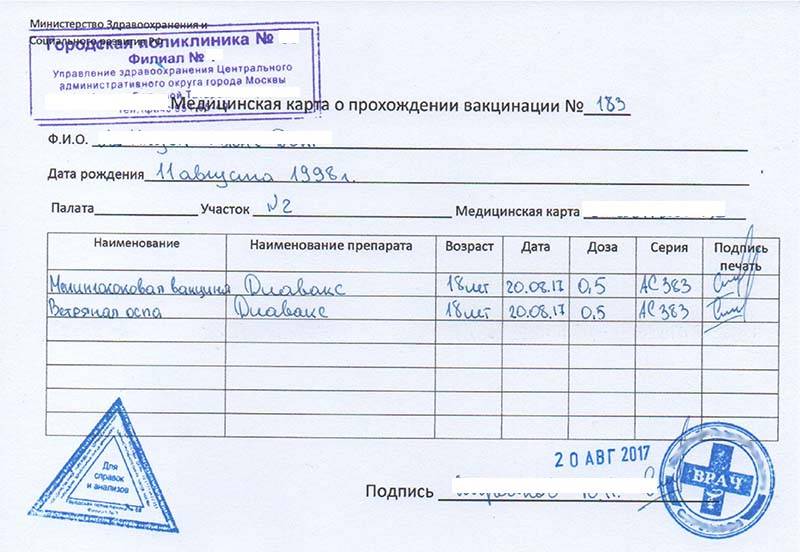 Министерство Здравоохранения и
Социального развития РФ
Городская поликлиника №
Филиал №
Управление здравоохранения Центрального
административного округа города Москвы
Медицинская карта о прохождении вакцинации № 183
Ф.И.О.
Дата рождения 11 августа 1998г.
Палата Участок №2 Медицинская карта
Наименование Наименование препарата Возраст Дата Доза Серия Подпись
печать
Менингококовая вакцина Диавакс 18 лет 20.08.17 0,5 АС383
Ветряная оспа Диавакс 18 лет 20.08.17 0,5 АС383
Для
справок
и анализов
20 АВГ 2017
Подпись
ВРАЧ